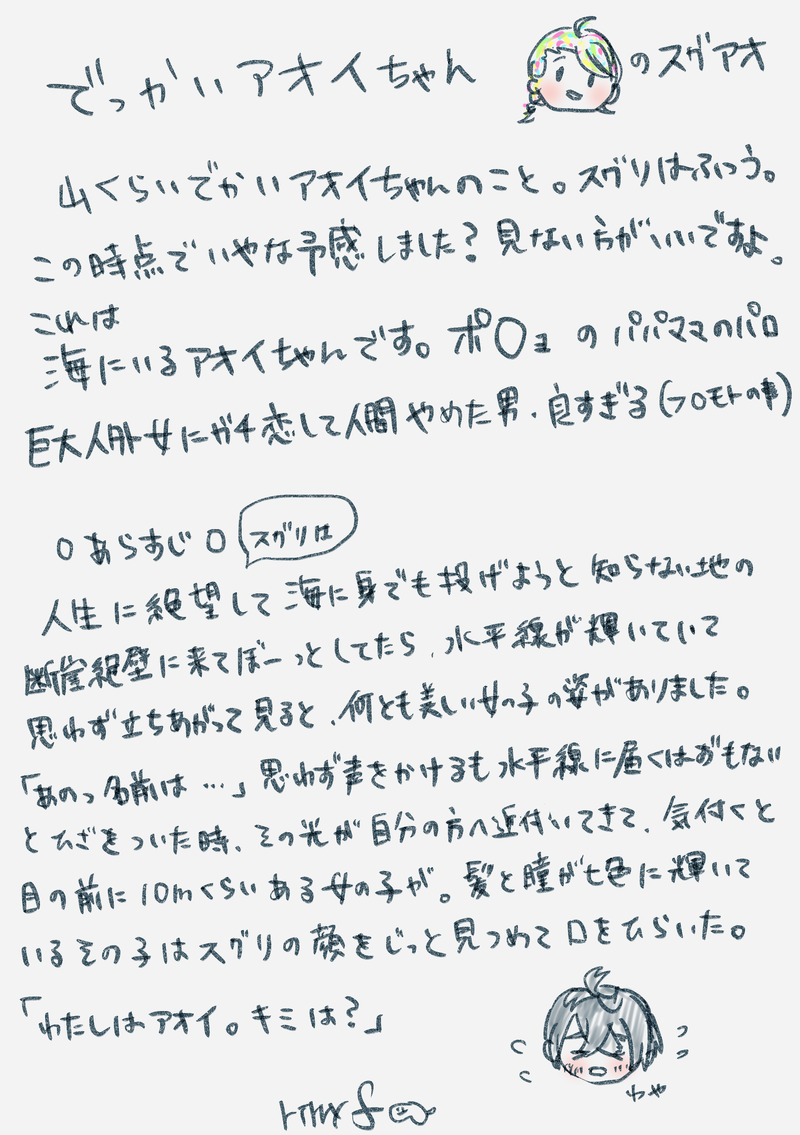 でっかいアオイちゃん のスグアオ
山くらいでかいアオイちゃんのこと。スグリはふつう。
この時点でいやな予感しました？見ない方がいいですよ。
これは
海にいるアオイちゃんです。ポ〇ョ のパパママのパロ
巨大人外女にガチ恋して人間やめた男、良すぎる(フ〇モトの事)
○あらすじ○ スグリは
人生に絶望して海に身でも投げようと知らない地の
断崖絶壁に来てぼーっとしてたら、水平線が輝いていて
思わず立ちあがって見ると、何とも美しい女の子の姿がありました。
「あのっ名前は…」思わず声をかけるも水平線に届くはずもない
とひざをついた時、その光が自分の方へ近付いてきて、気付くと
目の前に10mくらいある女の子が。髪と瞳が七色に輝いて
いるその子はスグリの顔をじっと見つめて口をひらいた。
「わたしはアオイ。キミは？」
わや